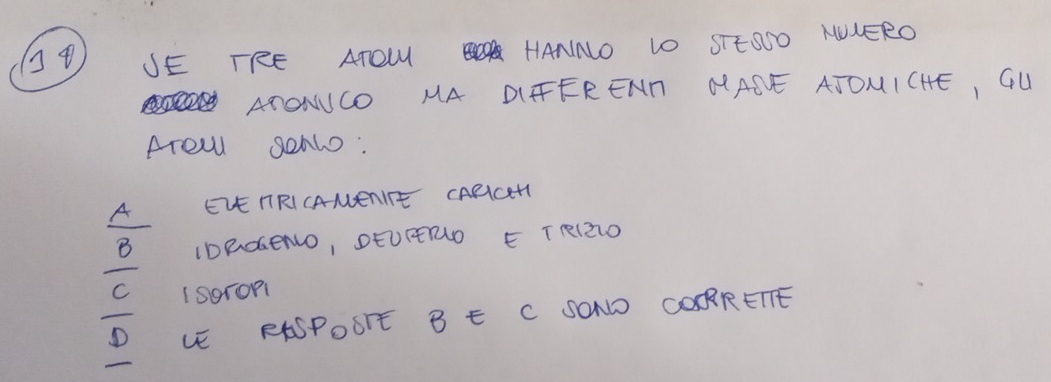 19 SE TRE ATOMI HANNO LO STESSO NUMERO
ATOMICO MA DIFFERENTI MASSE ATOMICHE, GLI
ATOMI SONO:
A ELETTRICAMENTE CARICHI
B IDROGENO, DEUTERIO E TRIZIO
C ISOTOPI
D LE RISPOSTE B E C SONO CORRETTE